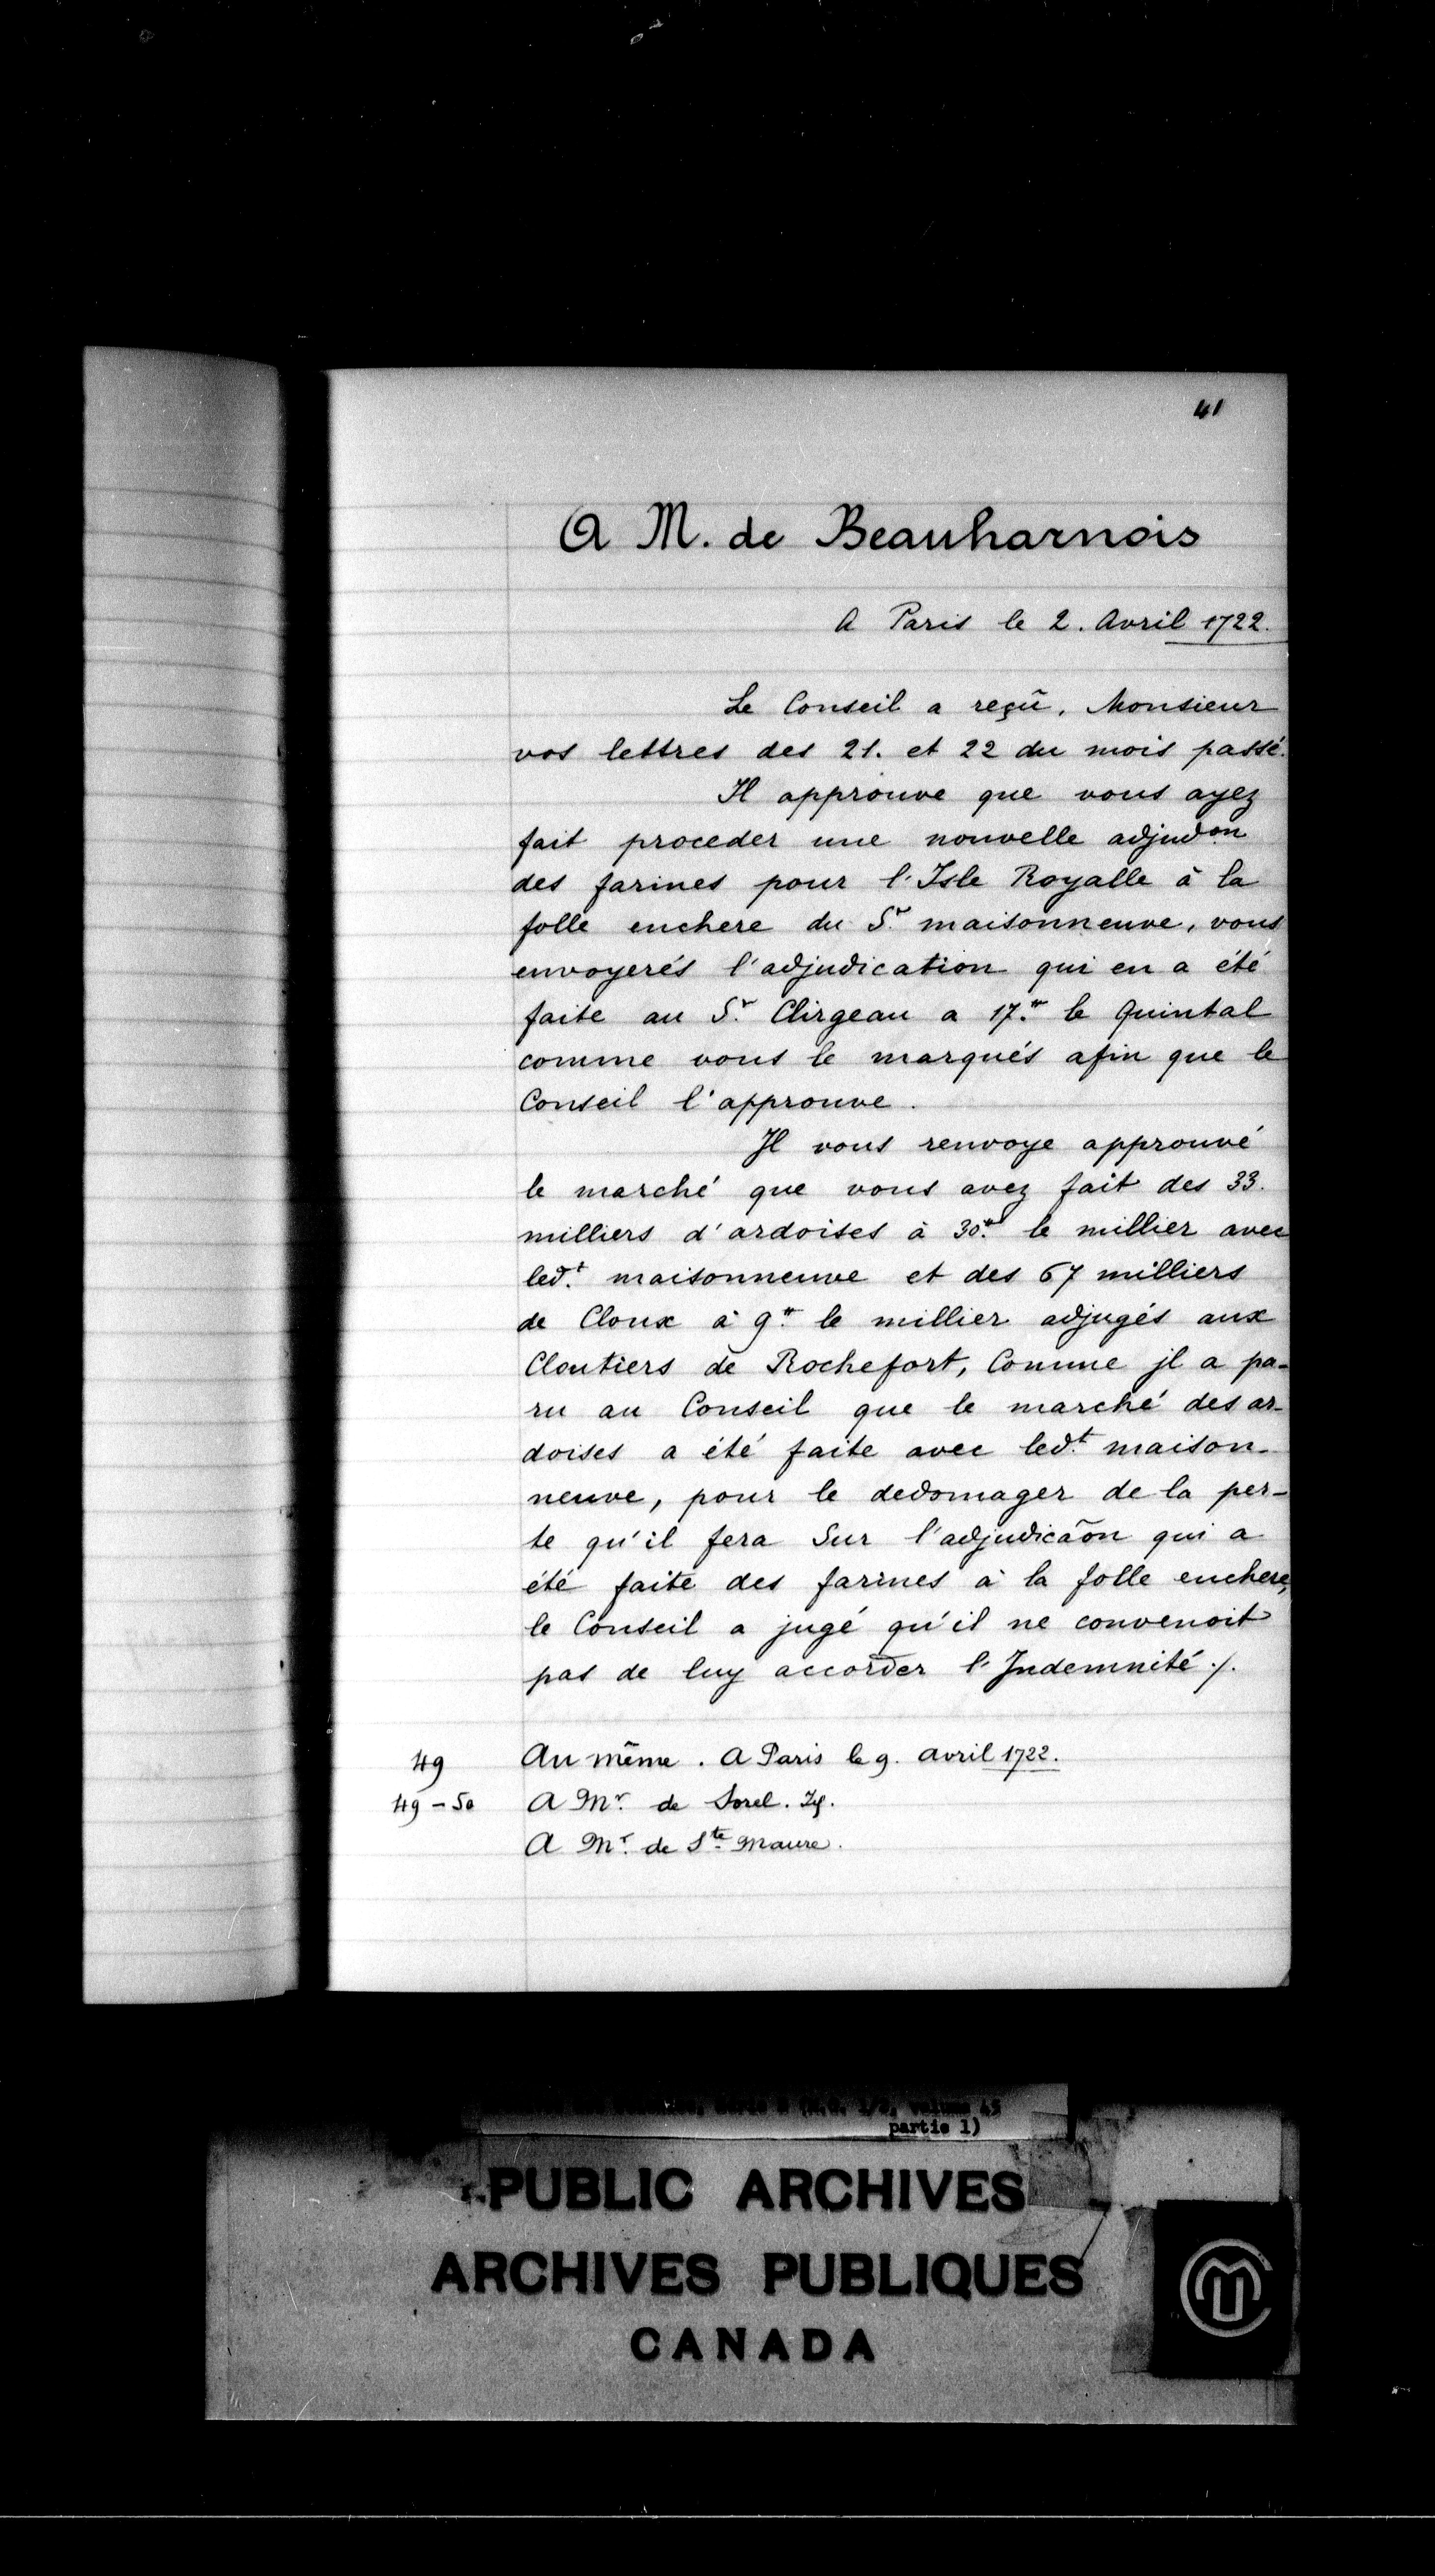 41
A M. de Beauharnois
A Paris le 2. Avril 1722.
Le Conseil a reçû, Monsieur
vos lettres des 21. et 22 du mois passé.
Il approuve que vous ayez
fait proceder une nouvelle adjudon
des farines pour l'Isle Royalle à la
folle enchere du Sr. maisonneuve, vous
envoyerés l'adjudication qui en a été
faite au Sr. Clirgeau a 17.# le Quintal
comme vous le marqués afin que le
Conseil l'approuve.
Il vous renvoye approuvé
le marché que vous avez fait des 33.
milliers d'ardoises à 30.# le millier avec
led.t maisonneuve et des 67 milliers
de Cloux à 9.# le millier adjugés aux
Cloutiers de Rochefort, Comme jl a pa-
ru au Conseil que le marché des ar-
doises a été faite avec led.t maison-
neuve, pour le dedomager de la per-
te qu'il fera Sur l'adjudicãon qui a
été faite des farines à la folle enchere,
le Conseil a jugé qu'il ne convenoit
pas de luy accorder l'Indemnité ./.
49 Au même. A Paris le 9. avril 1722.
49-50 A Mr. de Sorel.
A Mr. de Ste Maure.
Volume 45
partie 1)
PUBLIC ARCHIVES
ARCHIVES PUBLIQUES
CANADA